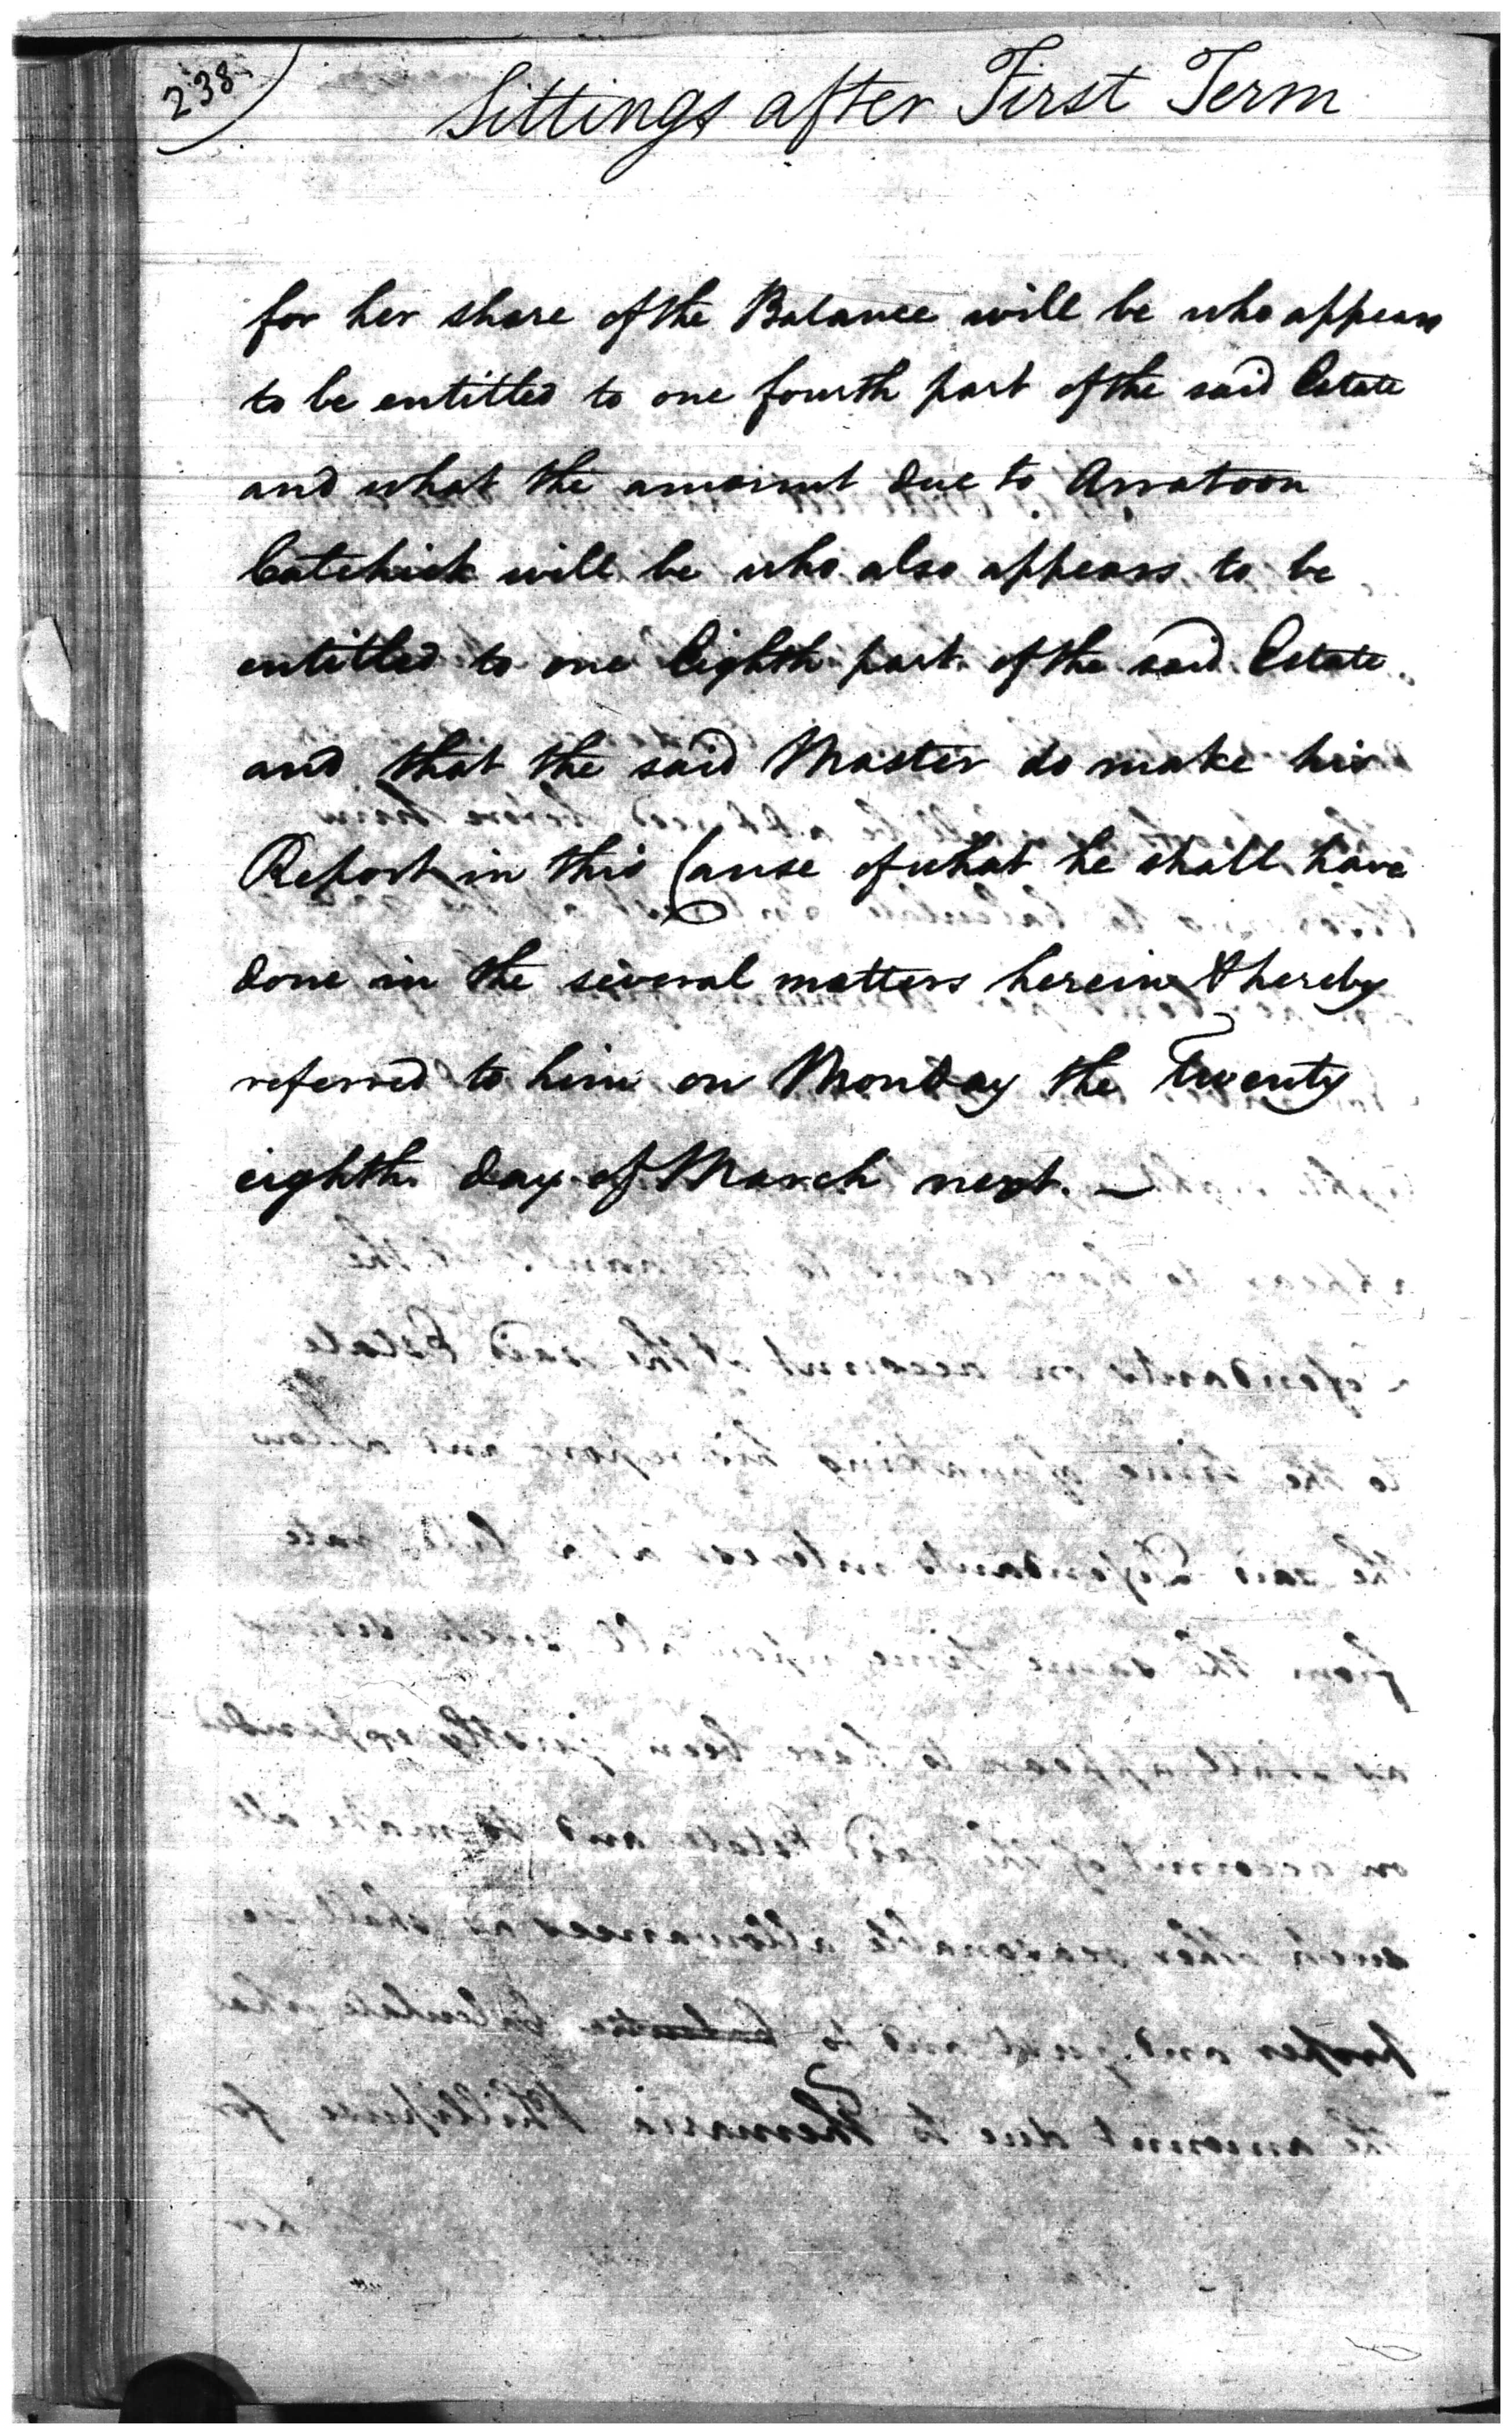 238
Sittings after First Term
for her share of the Balance will be who appears
to be entitled to one fourth part of the said Estate
and what the amount due to Arratoon
Catchick will be who also appears to be
entitled to one Eighth part of the said Estate
and that the said Master do make his
Report in this Cause of what he shall have
done in the several matters herein & hereby
referred to him on Monday the Twenty
eighth day of March next. —